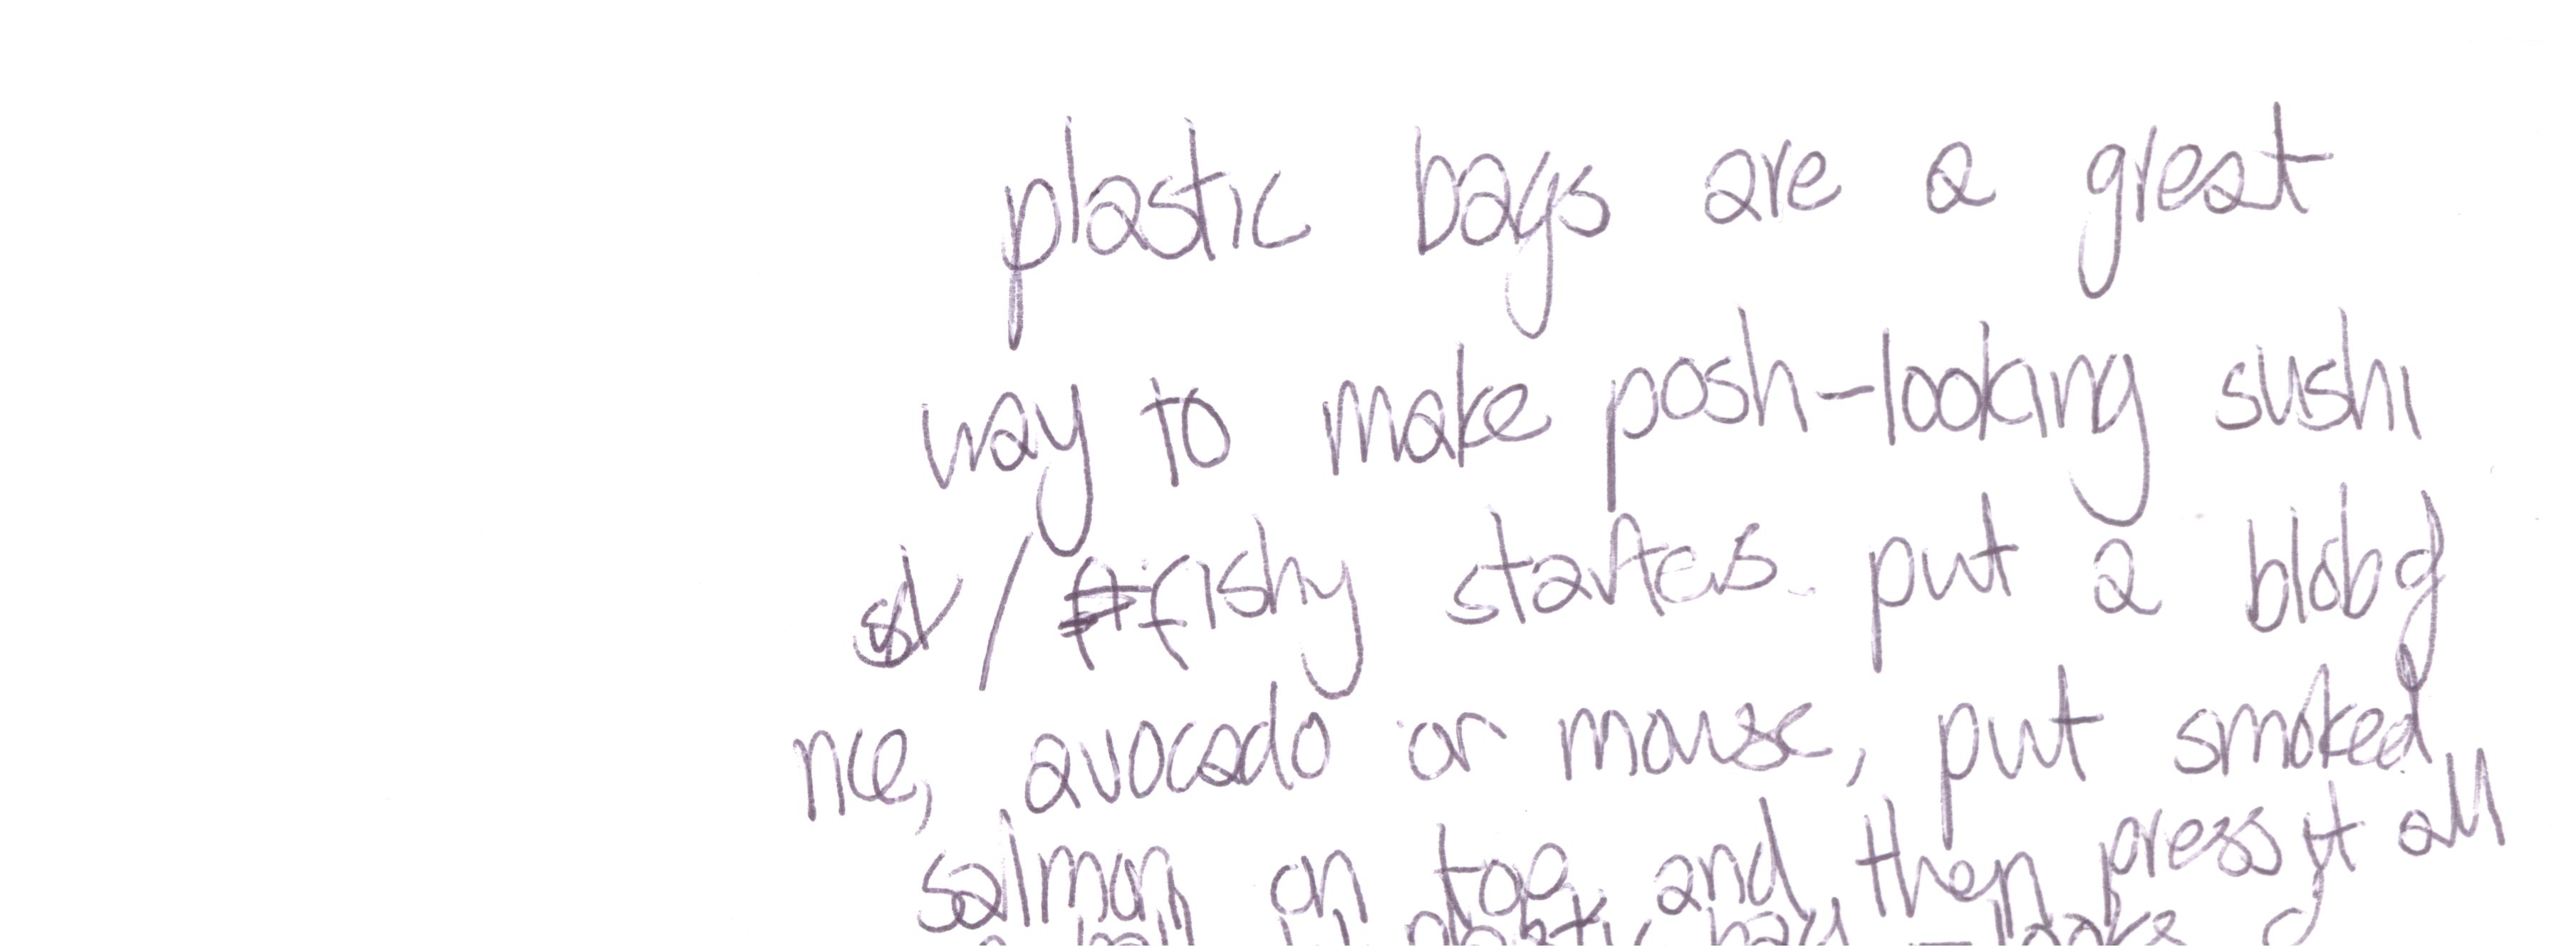 plastic bags are a great
way to make posh-looking sushi
/ fishy starters. put a blob of
rice, avocado or mousse, put smoked
salmon on top and then press it all